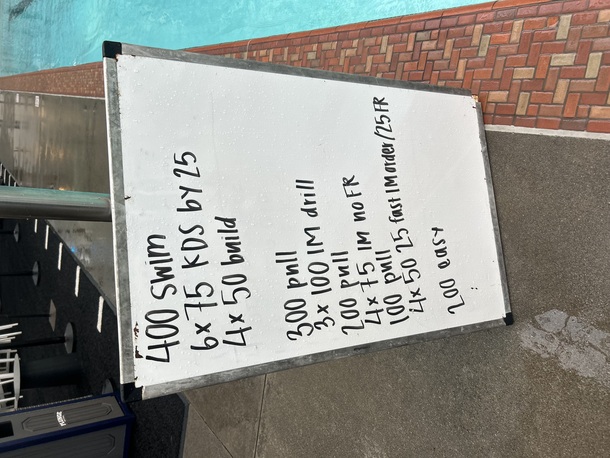 400 swim
6x75 KDS by 25
4x50 build
300 pull
3x100 IM drill
200 pull
4x75 IM no FR
100 pull
4x50 25 fast IM order/25FR
200 easy